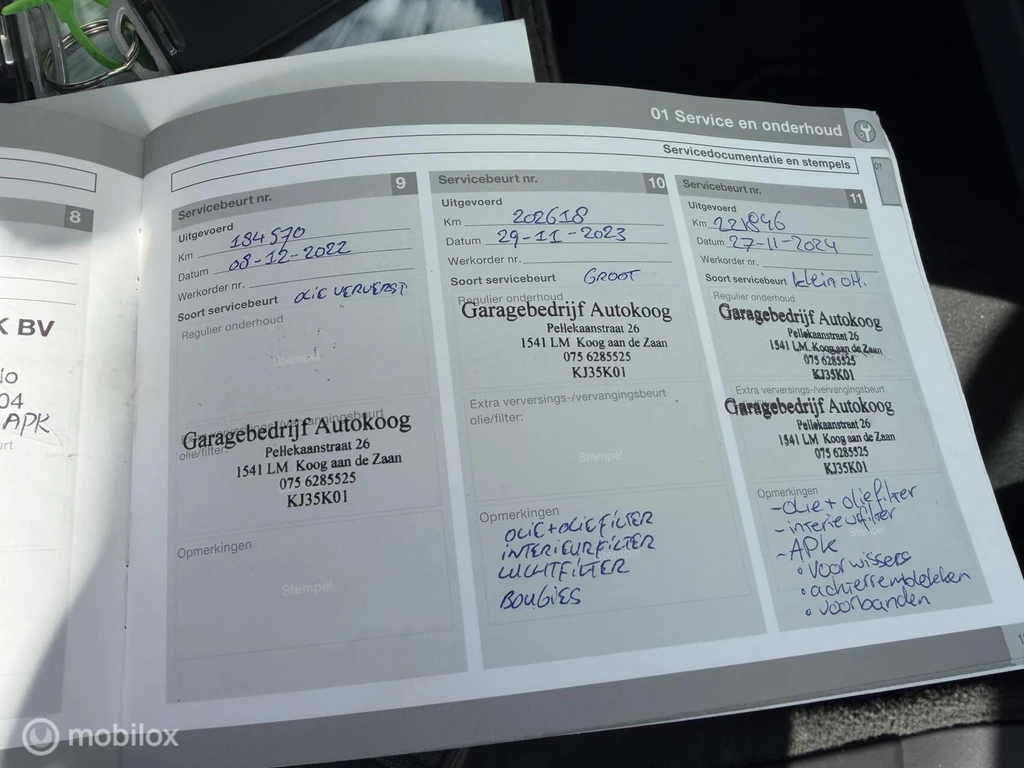 01 Service en onderhoud
Servicedocumentatie en stempels
01
8
K BV
04
APK
Servicebeurt nr. 9
Uitgevoerd
Km 184570
Datum 08-12-2022
Werkorder nr.
Soort servicebeurt OLIE VERVERST
Regulier onderhoud
Stempel
Extra verversings-/vervangingsbeurt
olie/filter:
Garagebedrijf Autokoog
Pellekaanstraat 26
1541 LM Koog aan de Zaan
075 6285525
KJ35K01
Opmerkingen
Stempel
Servicebeurt nr. 10
Uitgevoerd
Km 202618
Datum 29-11-2023
Werkorder nr.
Soort servicebeurt GROOT
Regulier onderhoud
Garagebedrijf Autokoog
Pellekaanstraat 26
1541 LM Koog aan de Zaan
075 6285525
KJ35K01
Extra verversings-/vervangingsbeurt
olie/filter:
Stempel
Opmerkingen
OLIE+OLIEFILTER
INTERIEURFILTER
LUCHTFILTER
BOUGIES
Servicebeurt nr. 11
Uitgevoerd
Km 221846
Datum 27-11-2024
Werkorder nr.
Soort servicebeurt klein OH.
Regulier onderhoud
Garagebedrijf Autokoog
Pellekaanstraat 26
1541 LM Koog aan de Zaan
075 6285525
KJ35K01
Extra verversings-/vervangingsbeurt
Garagebedrijf Autokoog
Pellekaanstraat 26
1541 LM Koog aan de Zaan
075 6285525
KJ35K01
Opmerkingen
-olie + oliefilter
-interieurfilter
-APK
• voorwissers
• achterremblokken
• voorbanden
mobilox